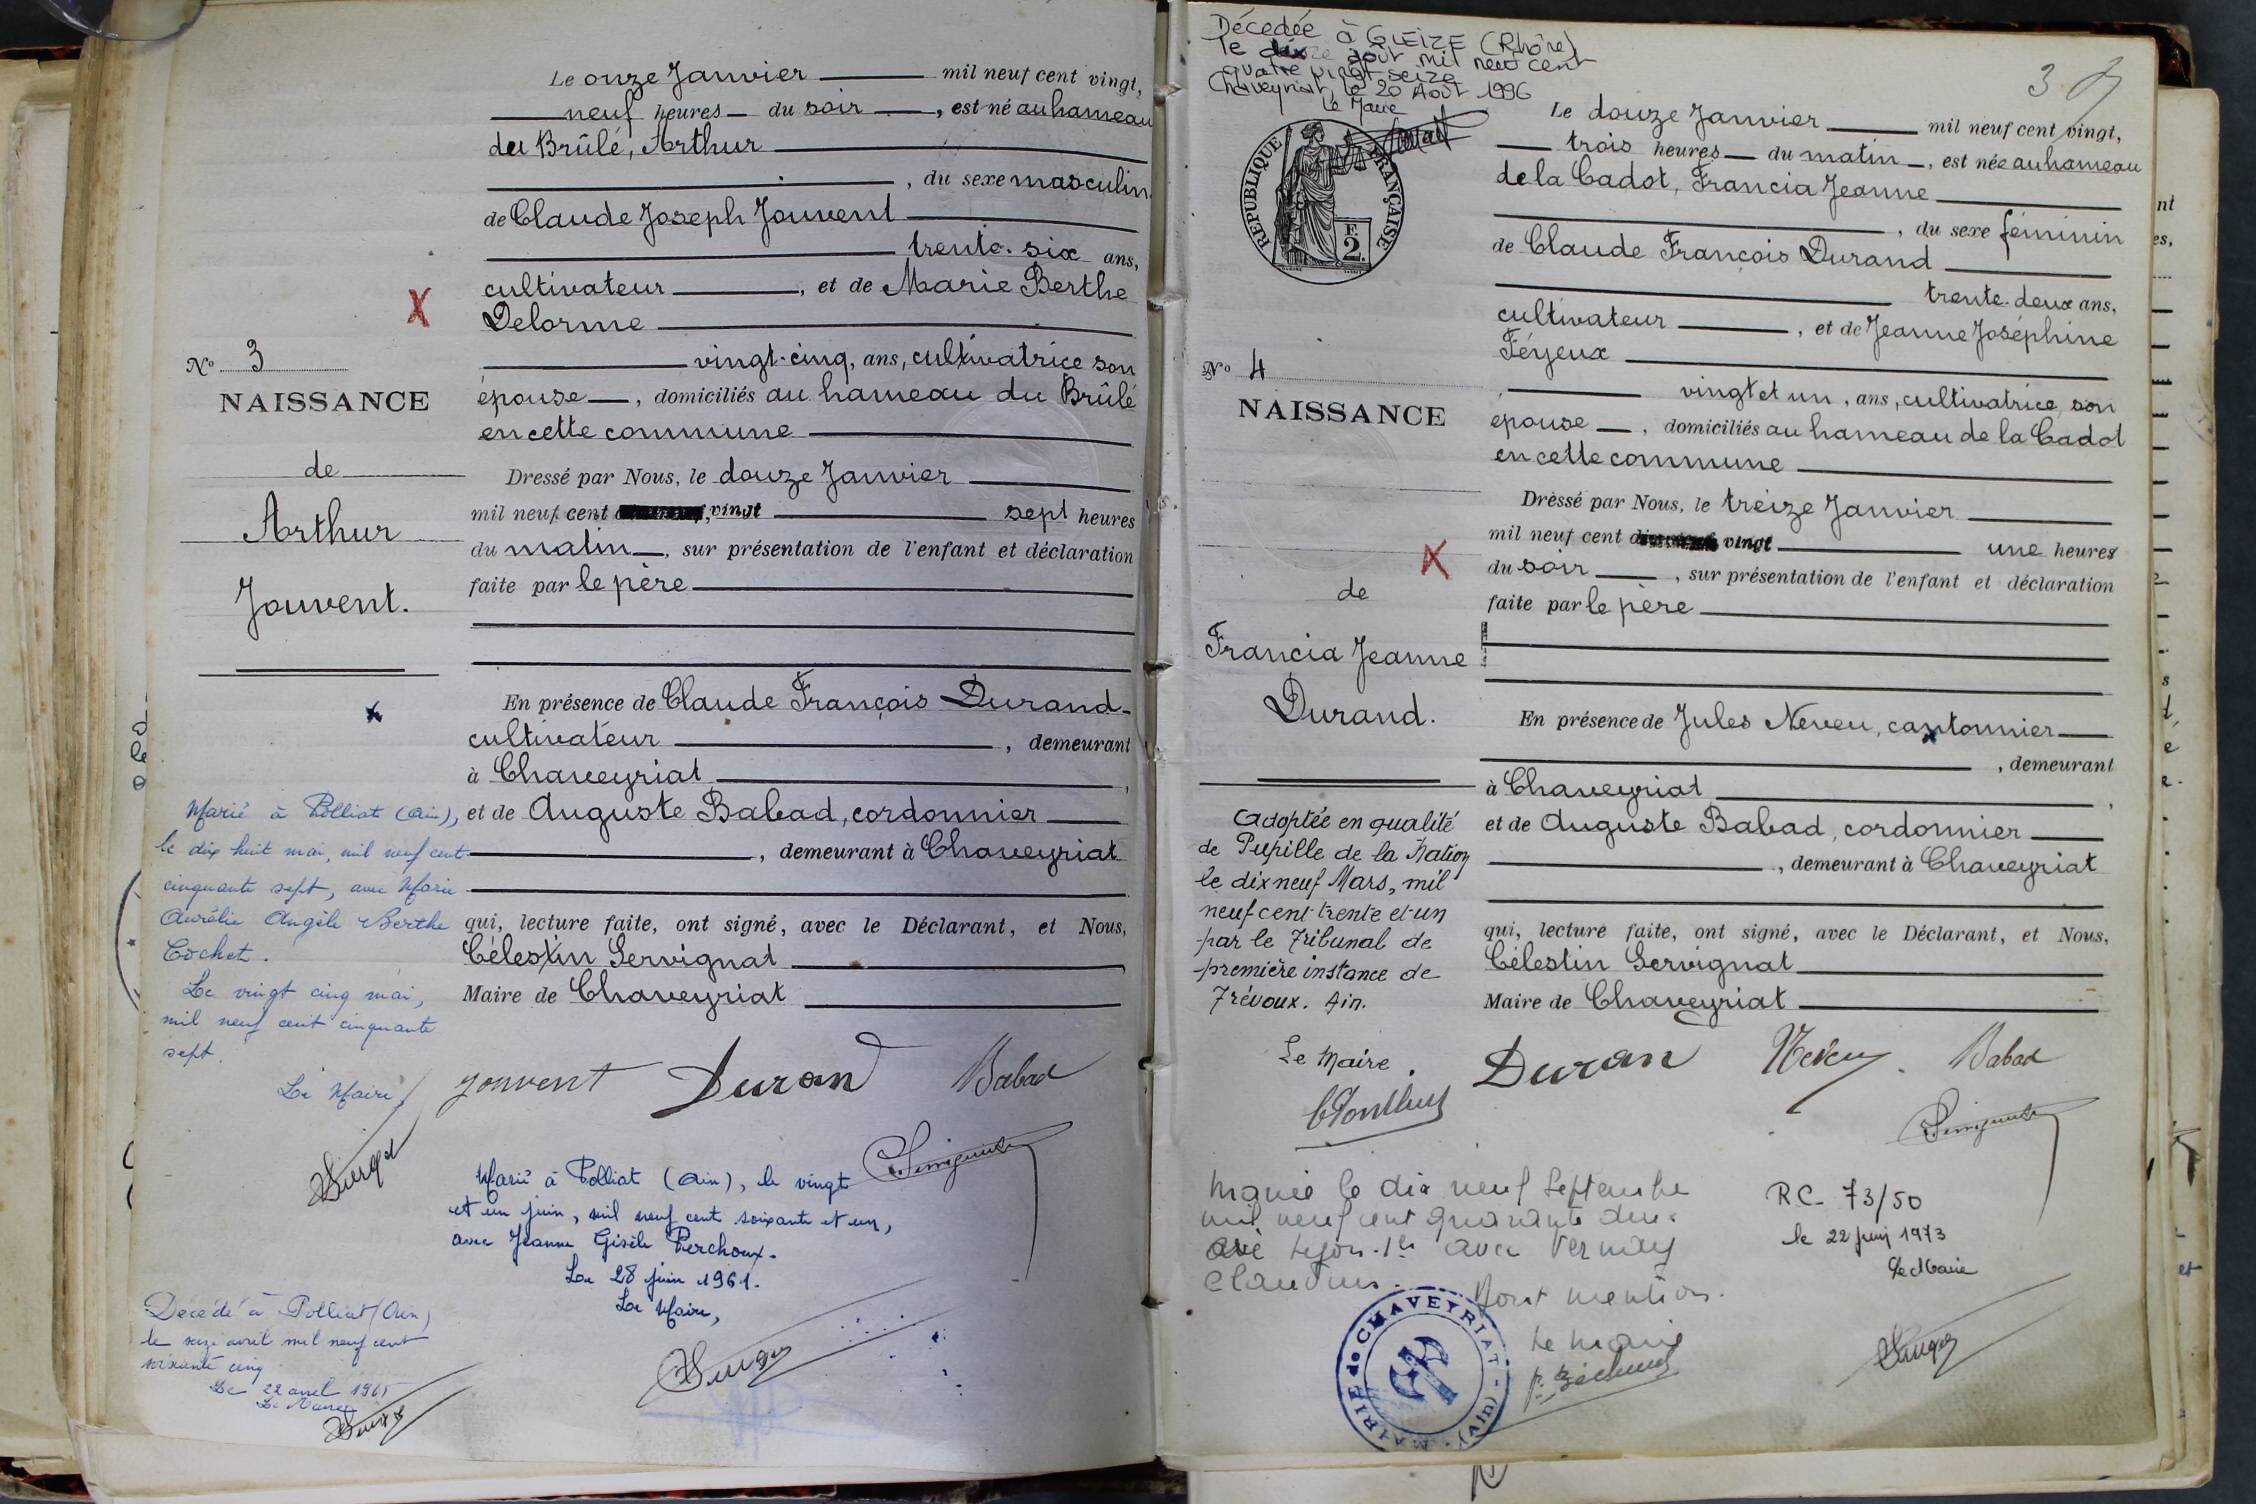 Le onze Janvier mil neuf cent vingt,
neuf heures du soir, est né au hameau
du Brûlé, Arthur
, du sexe masculin
de Claude Joseph Jouvent
trente-six ans,
cultivateur, et de Marie Berthe
Delorme
vingt-cinq, ans, cultivatrice son
épouse, domiciliés au hameau du Brûlé
en cette commune
Dressé par Nous, le douze Janvier
mil neuf cent vingt sept heures
du matin, sur présentation de l'enfant et déclaration
faite par le père
En présence de Claude François Durand
cultivateur, demeurant
à Chaveyriat,
et de Auguste Babad, cordonnier
, demeurant à Chaveyriat
qui, lecture faite, ont signé, avec le Déclarant, et Nous,
Célestin Servignat
Maire de Chaveyriat
Jouvent Duran Babad
No 3
NAISSANCE
de
Arthur
Jouvent.
Marié à Polliat (Ain),
le dix huit mai, mil neuf cent
cinquante sept, avec Marie
Aurélie Angèle Berthe
Cochet.
Le vingt cinq mai,
mil neuf cent cinquante
sept.
Le Maire,
Marié à Polliat (Ain), le vingt
et un juin, mil neuf cent soixante et un,
avec Jeanne Gisèle Perchoux.
Le 28 juin 1961.
Le Maire,
Décédé à Polliat (Ain)
le seize avril mil neuf cent
soixante cinq
Le 22 avril 1965
Le Maire
Décédée à GLEIZE (Rhône)
le août mil neuf cent
quatre vingt seize
Chaveyriat, le 20 Août 1996
Le Maire
RÉPUBLIQUE FRANÇAISE
F.
2.
3
Le douze Janvier mil neuf cent vingt,
trois heures du matin, est née au hameau
de la Cadot, Francia Jeanne
, du sexe féminin
de Claude François Durand
trente-deux ans,
cultivateur, et de Jeanne Joséphine
Féyeux
vingt et un, ans, cultivatrice, son
épouse, domiciliés au hameau de la Cadot
en cette commune
Dressé par Nous, le treize Janvier
mil neuf cent vingt une heures
du soir, sur présentation de l'enfant et déclaration
faite par le père
En présence de Jules Neveu, cantonnier
, demeurant
à Chaveyriat,
et de Auguste Babad, cordonnier
, demeurant à Chaveyriat
qui, lecture faite, ont signé, avec le Déclarant, et Nous,
Célestin Servignat
Maire de Chaveyriat
Duran Neveu Babad
No 4
NAISSANCE
de
Francia Jeanne
Durand.
Adoptée en qualité
de Pupille de la Nation
le dix neuf Mars, mil
neuf cent trente et un
par le Tribunal de
première instance de
Trévoux. Ain.
Le Maire.
Mariée le dix neuf Septembre
mil neuf cent quarante deux
Lyon-1er avec Vernay
Claudius.
Dont mention.
Le Maire
R.C. 73/50
le 22 juin 1973
Le Maire
MAIRIE de CHAVEYRIAT (Ain)